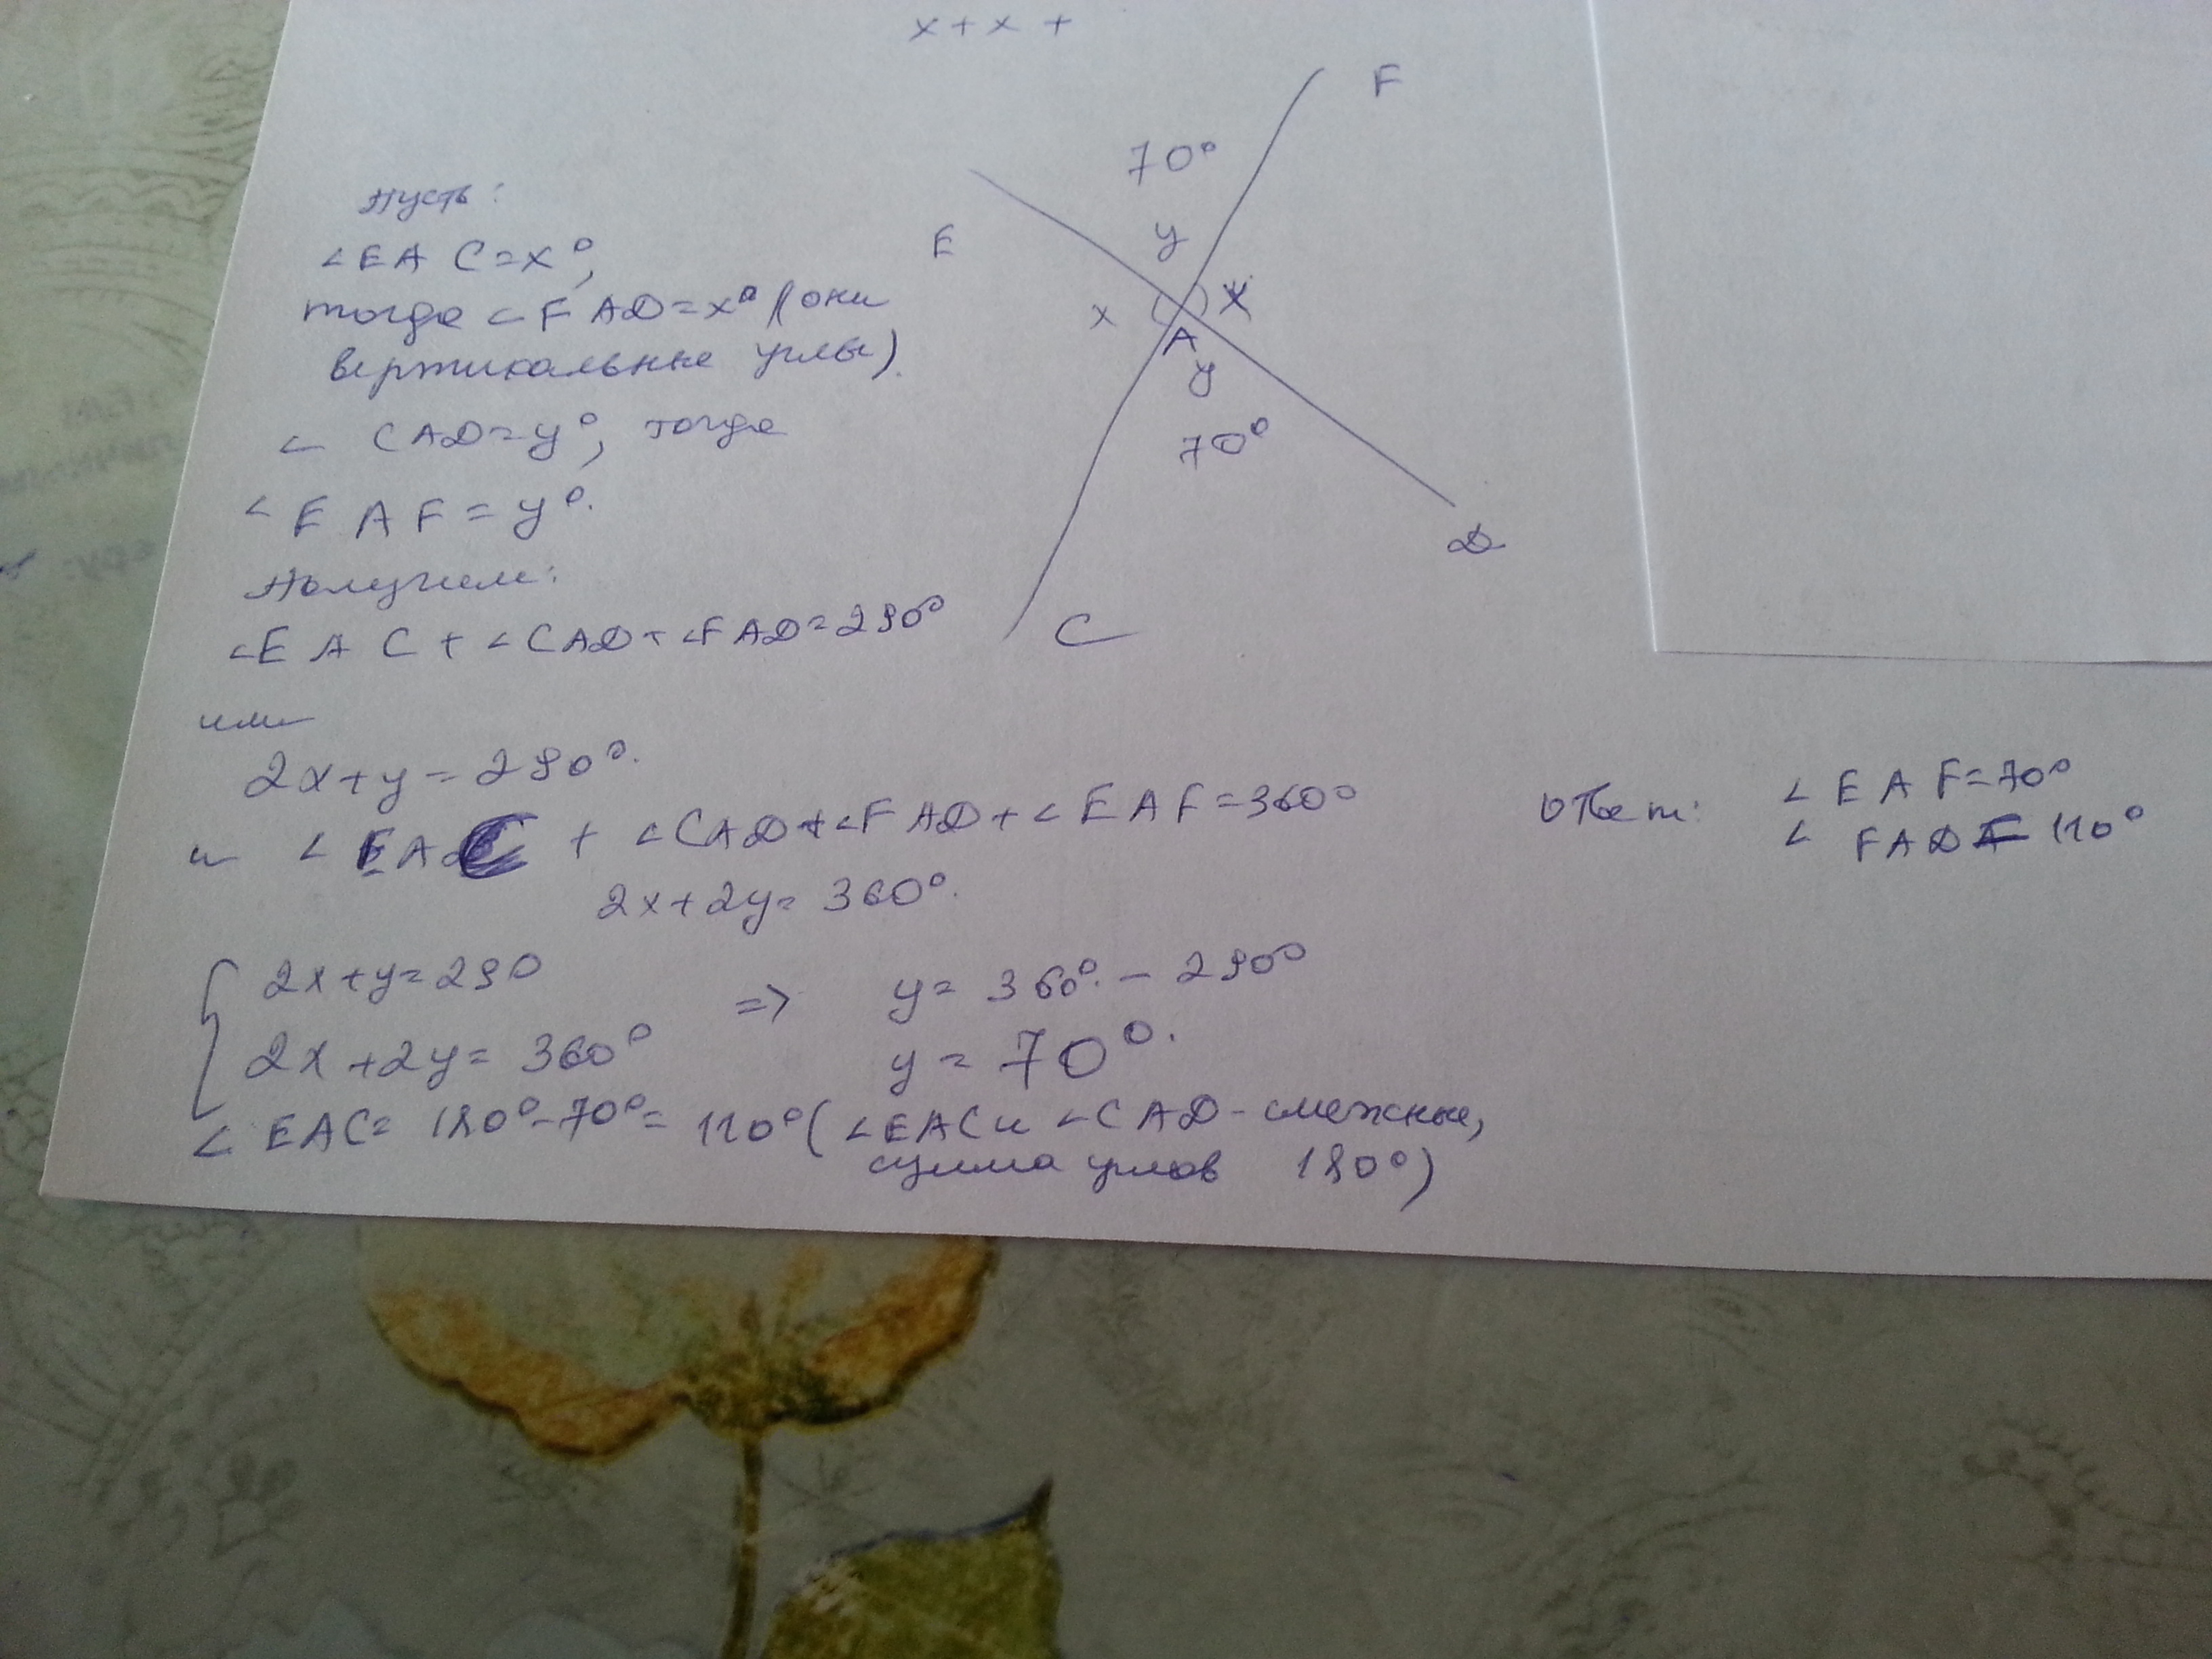 x + x +
F
70°
E
y
x
x
A
y
70°
D
C
Пусть:
∠EAC=x°,
тогда ∠FAD=x° (они
вертикальные углы).
∠ CAD=y°, тогда
∠EAF=y°.
Получим:
∠EAC+∠CAD+∠FAD=290°
или
2x+y=290°.
и ∠EAC + ∠CAD+∠FAD+∠EAF=360°
2x+2y=360°.
2x+y=290
2x+2y=360°
=> y=360°-290°
y=70°.
∠EAC=180°-70°=110° (∠EAC и ∠CAD-смежные,
сумма углов 180°)
Ответ: ∠EAF=70°
∠FAD=110°